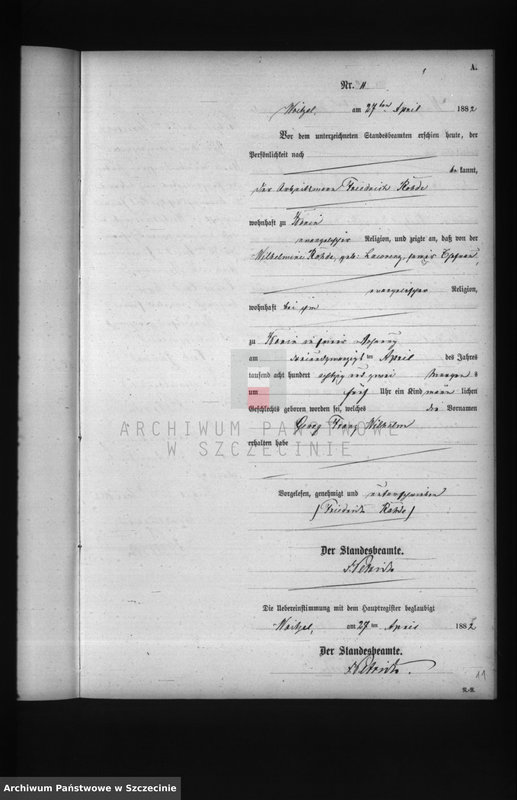 A.
Nr. 11
am 27ten April 1882
Vor dem unterzeichneten Standesbeamten erschien heute, der
Persönlichkeit nach
be kannt,
der Arbeitsmann Friedrich Rohde
wohnhaft zu
evangelischer Religion, und zeigte an, daß von der
Wilhelmine Rohde, geb. seiner Ehefrau,
evangelischer Religion,
wohnhaft bei ihm
zu in seiner Wohnung
am dreiundzwanzigsten April des Jahres
tausend acht hundert achtzig und zwei Morgens
um fünf Uhr ein Kind männlichen
Geschlechts geboren worden sei, welches die Vornamen
Georg Franz Wilhelm
erhalten habe
ARCHIWUM PAŃSTWOWE
W SZCZECINIE
Vorgelesen, genehmigt und unterschrieben
(Friedrich Rohde)
Der Standesbeamte.
Die Uebereinstimmung mit dem Hauptregister beglaubigt
am 27ten April 1882
Der Standesbeamte.
11
R.-R.
Archiwum Państwowe w Szczecinie